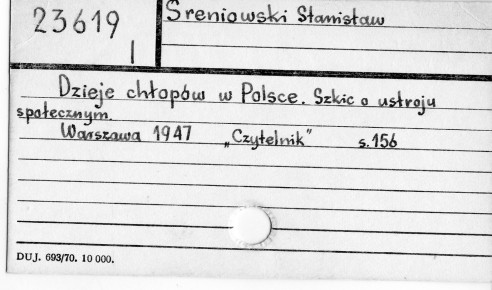 23619
I
Sreniowski Stanisław
Dzieje chłopów w Polsce. Szkic o ustroju
społecznym.
Warszawa 1947 „Czytelnik" s. 156
DUJ. 693/70. 10 000.